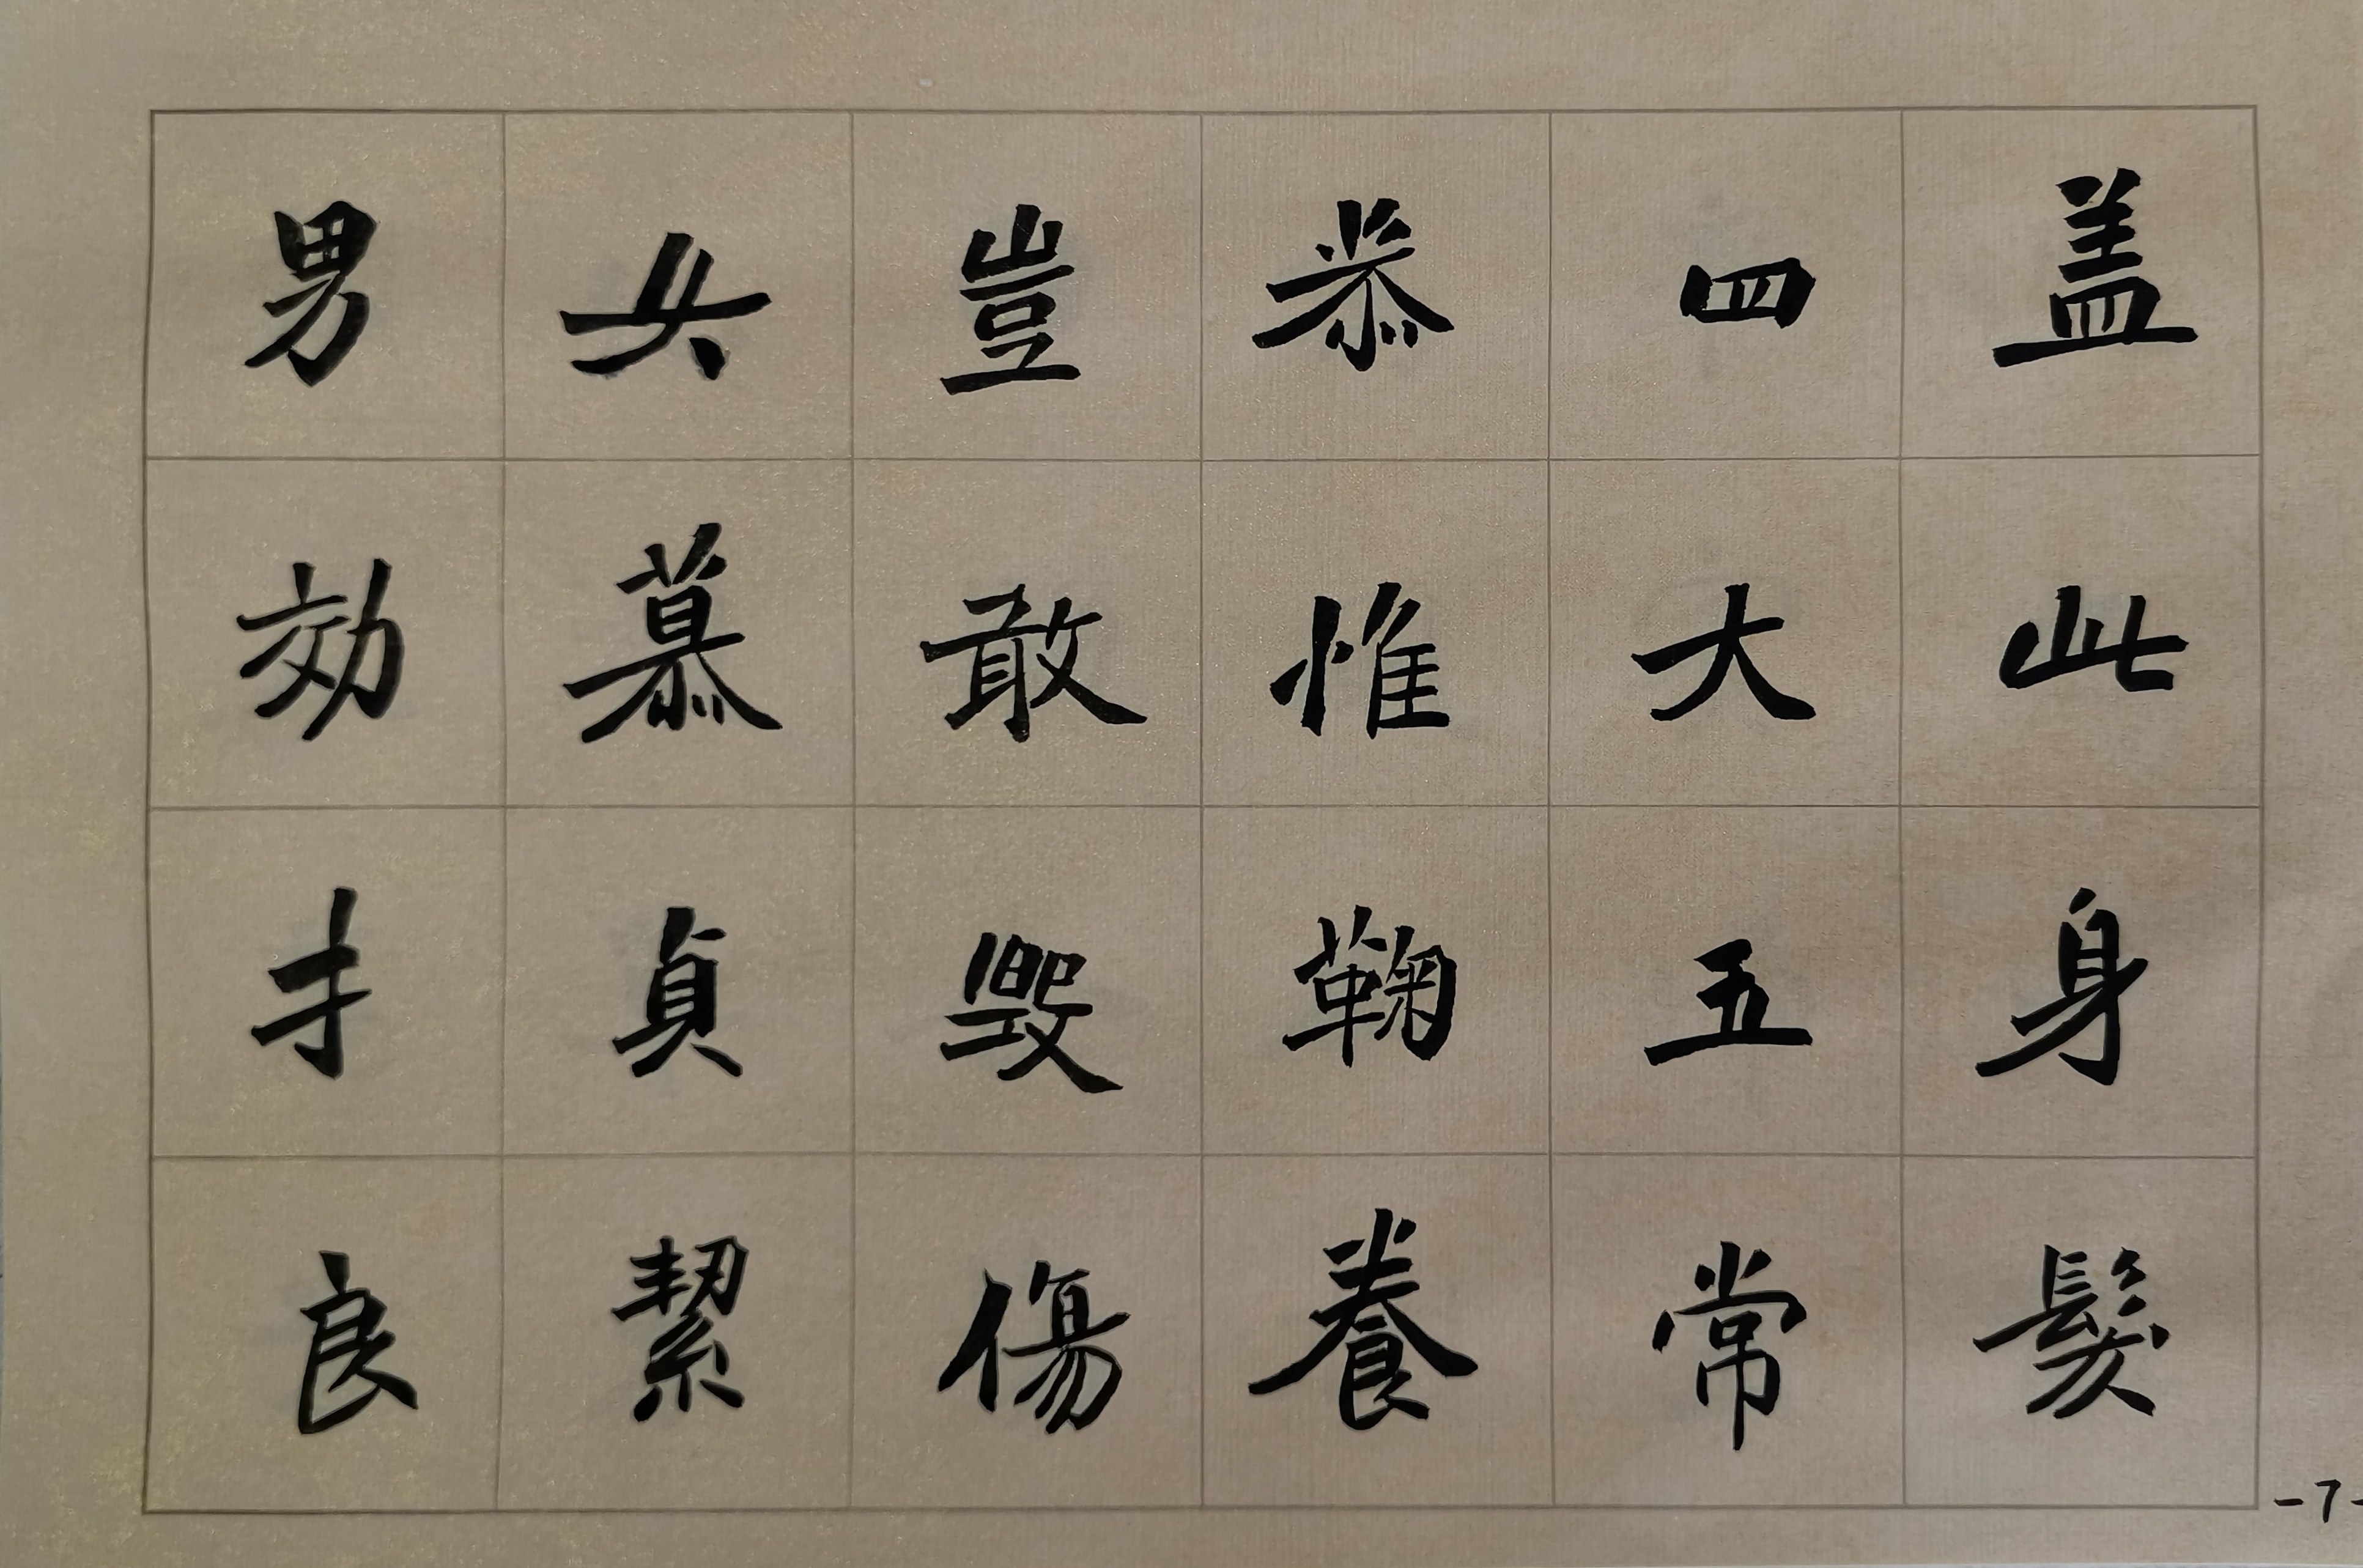 盖此身髮
四大五常
恭惟鞠養
豈敢毀傷
女慕貞絜
男効才良
-7-